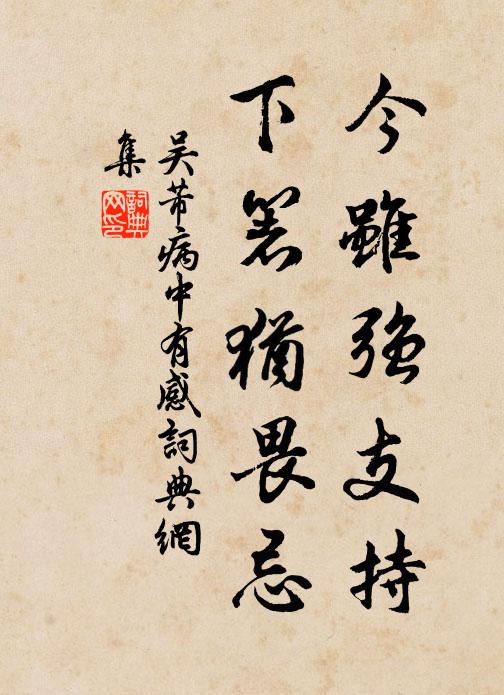 今雖強支持
下箸猶畏忌
吴芾病中有感詞典網
集
詞典
网印